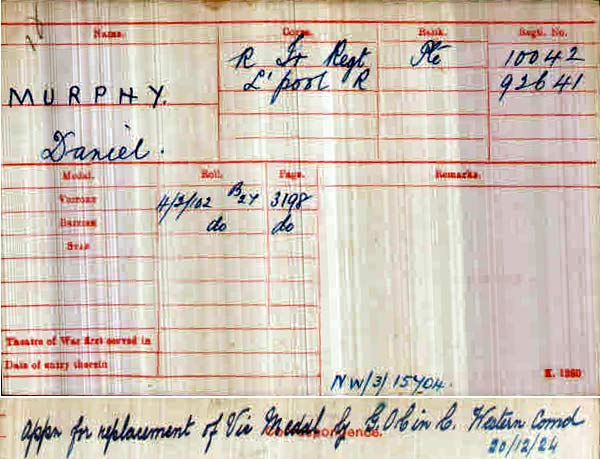 Name. Corps. Rank. Regtl. No.
MURPHY. R Ir Regt Pte 10042
L'pool R 92641
Daniel.
Medal. Roll. Page. Remarks.
VICTORY 4/2/102 B24 3198
BRITISH do do
STAR
Theatre of War first served in
Date of entry therein
NW/3/15404. K. 1380
Appn for replacement of Vic Medal by G.O.C in C. Western Comd
Correspondence.
20/12/24